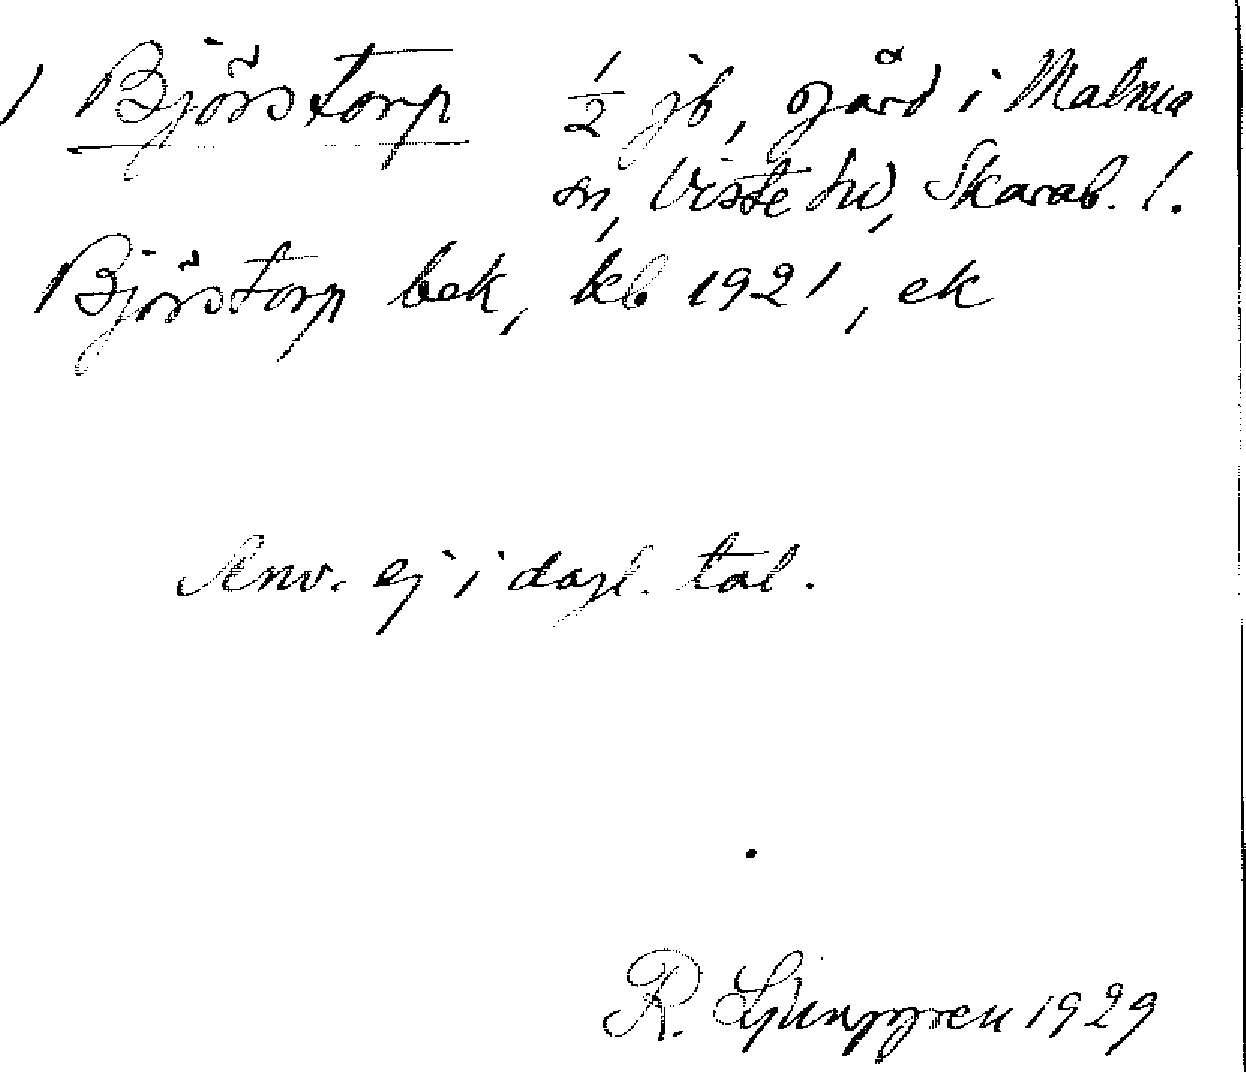 1 Björstorp ½ jb, gård i Malma
sn, Viste hd, Skarab. l.
Björstorp bek, kb 1921, ek
Anv. ej i dagl. tal.
R. Ljunggren 1929